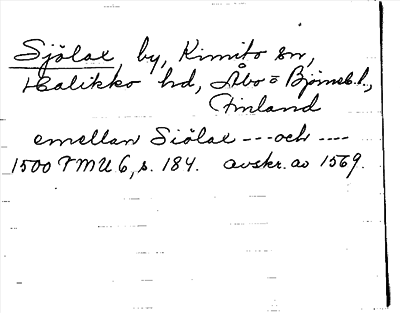 Sjölax, by, Kimito sn,
Halikko hd, Åbo o Björneb. l.,
Finland
emellan Siölax --- och ----
1500 FMU 6, s. 184. avskr. av 1569.